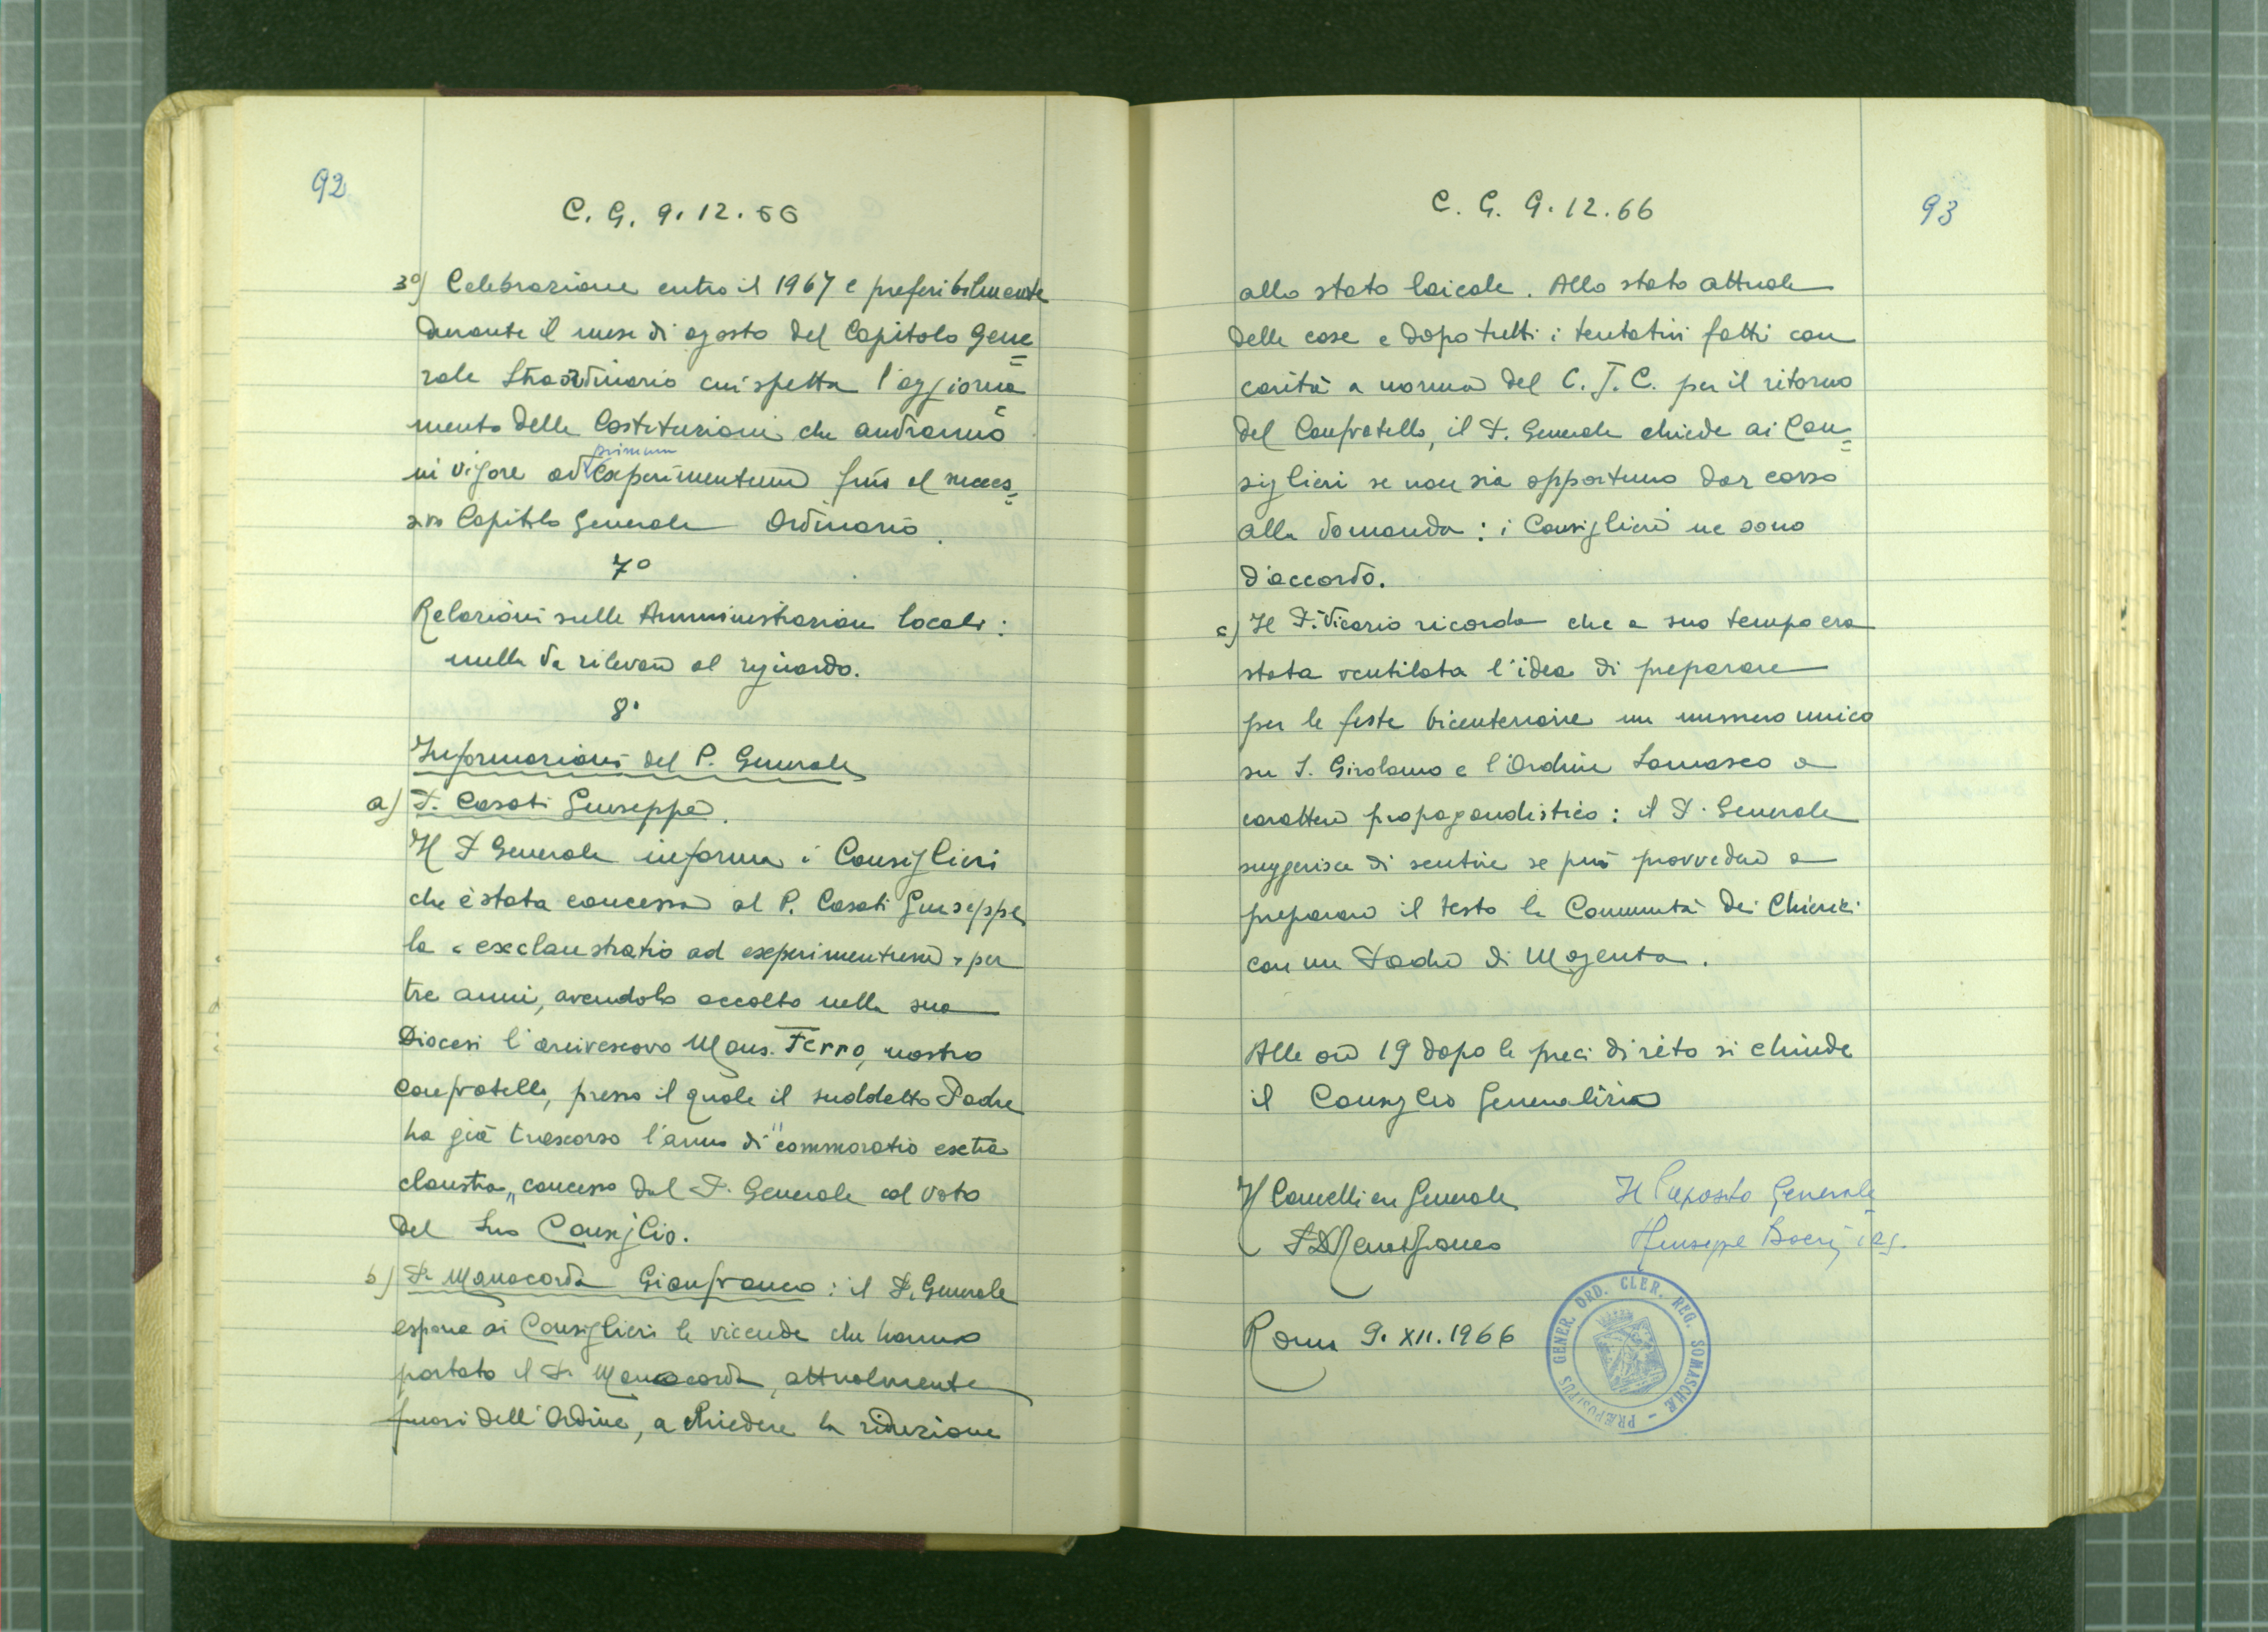 92
C. G. 9.12.66
3°) Celebrazione entro il 1967 e preferibilmente
durante il mese di agosto del Capitolo Gene=
rale Straordinario cui spetta l'aggiorna=
mento delle Costituzioni che andranno
primum
in vigore ad experimentum fino al succes=
sivo Capitolo Generale Ordinario.
7°
Relazioni sulle Amministrazioni locali:
nulla da rilevare al riguardo.
8°
Informazioni del P. Generale
a) P. Casati Giuseppe.
Il P. Generale informa i Consiglieri
che è stata concessa al P. Casati Giuseppe
la "exclaustratio ad experimentum" per
tre anni, avendolo accolto nella sua
Diocesi l'arcivescovo Mons. Ferro, nostro
confratello, presso il quale il suddetto Padre
ha già trascorso l'anno di "commoratio extra
claustra" concesso dal P. Generale col voto
del Suo Consiglio.
b) P. Manacorda Gianfranco: il P. Generale
espone ai Consiglieri le vicende che hanno
portato il P. Manacorda, attualmente
fuori dell'Ordine, a chiedere la riduzione
C. G. 9.12.66
93
allo stato laicale. Allo stato attuale
delle cose e dopo tutti i tentativi fatti con
carità a norma del C.J.C. per il ritorno
del Confratello, il P. Generale chiede ai Con=
siglieri se non sia opportuno dar corso
alla domanda: i Consiglieri ne sono
d'accordo.
c) Il P. Vicario ricorda che a suo tempo era
stata ventilata l'idea di preparare
per le feste bicentenarie un numero unico
su S. Girolamo e l'Ordine Somasco a
carattere propagandistico: il P. Generale
suggerisce di sentire se può provvedere a
preparare il testo la Comunità dei Chierici
con un Padre di Magenta.
Alle ore 19 dopo le preci di rito si chiude
il Consiglio Generalizio
Il Cancelliere Generale
Il Preposito Generale
Giuseppe Boeris crs.
Roma 9. XII. 1966
PRÆPOSITUS GENER. ORD. CLER. REG. SOMASCHÆ